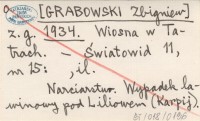 [GRABOWSKI Zbigniew]
z.g. 1934. Wiosna w Ta-
trach. – Światowid 11,
nr 15: , il.
Narciarstwo. Wypadek la-
winowy pod Liliowem (Karpij).